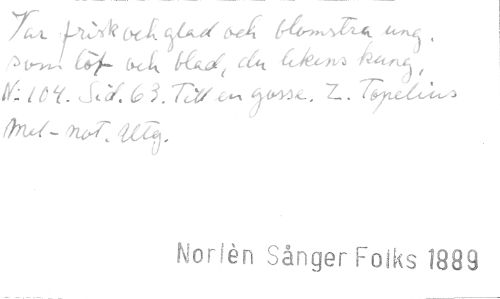 Var frisk och glad och blomstra ung,
som löf och blad, du lekens kung,
N: 104. Sid. 63. Till en gosse. Z. Topelius
Mel-not. Utg.
Norlèn Sånger Folks 1889